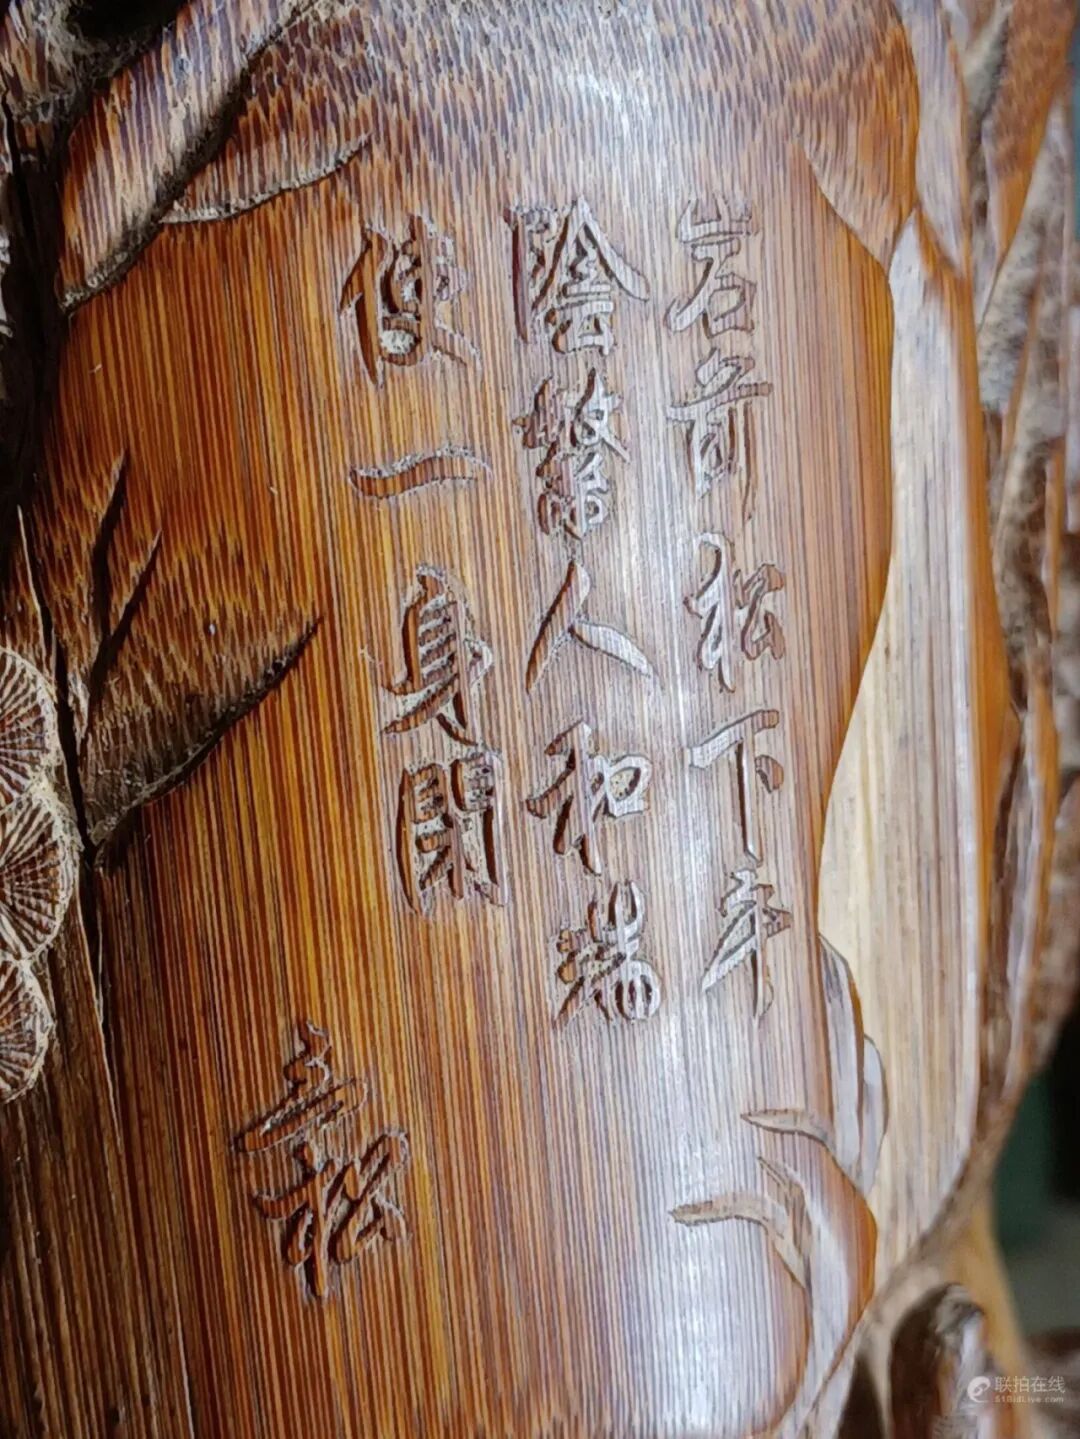 岩奇松下年
陰繁人和瑞
使一身閑
松
联拍在线
51BidLive.com